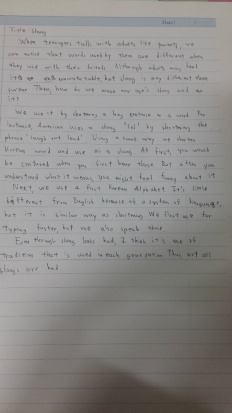 Title: Slang
When teenagers talk with adults like parents, we
can notice that words used by them are different when
they use with their friends. Although adults may feel
it's uncomfortable, but slang is any different these
Then, how do we make any new slang and use
it?
We use it by shortening a long sentence or a word. For
instance, American uses a slang "lol" by shortening the
phrase "laugh out loud". Using a same way, we shorten
Korean word and use as a slang. At first, you would
be confused when you first hear those. But after you
understand what it means, you might feel funny about it
Next, we use a first Korean Alphabet. It's little
different from English because of a system of language,
but it is similar way as shortening. We first use for
typing faster, but we also speak these
Even through slang looks bad, I think it's one of
tradition that is used in each generation. Thus, not all
slangs are bad